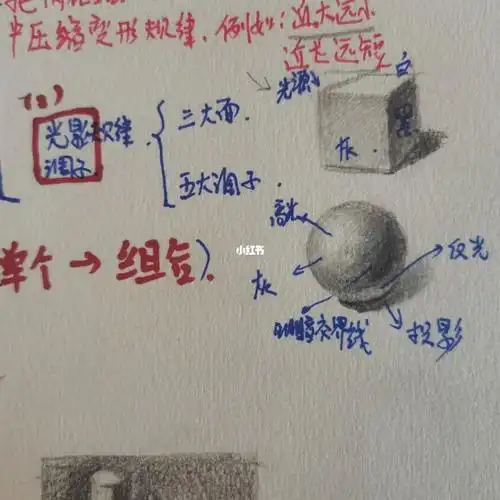 压缩变形规律、例如：近大远小
近长远短
光源
白
黑
灰
(2)
光影规律
调子
三大面
五大调子
高光
反光
灰
明暗交界线
投影
小红书
单个→组合)